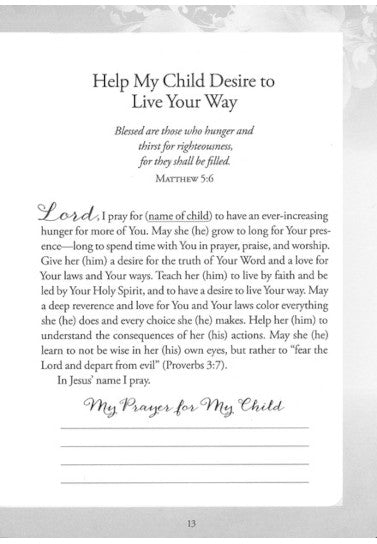 Help My Child Desire to
Live Your Way
Blessed are those who hunger and
thirst for righteousness,
for they shall be filled.
Matthew 5:6
Lord, I pray for (name of child) to have an ever-increasing
hunger for more of You. May she (he) grow to long for Your pres-
ence—long to spend time with You in prayer, praise, and worship.
Give her (him) a desire for the truth of Your Word and a love for
Your laws and Your ways. Teach her (him) to live by faith and be
led by Your Holy Spirit, and to have a desire to live Your way. May
a deep reverence and love for You and Your laws color everything
she (he) does and every choice she (he) makes. Help her (him) to
understand the consequences of her (his) actions. May she (he)
learn to not be wise in her (his) own eyes, but rather to “fear the
Lord and depart from evil” (Proverbs 3:7).
In Jesus’ name I pray.
My Prayer for My Child
13